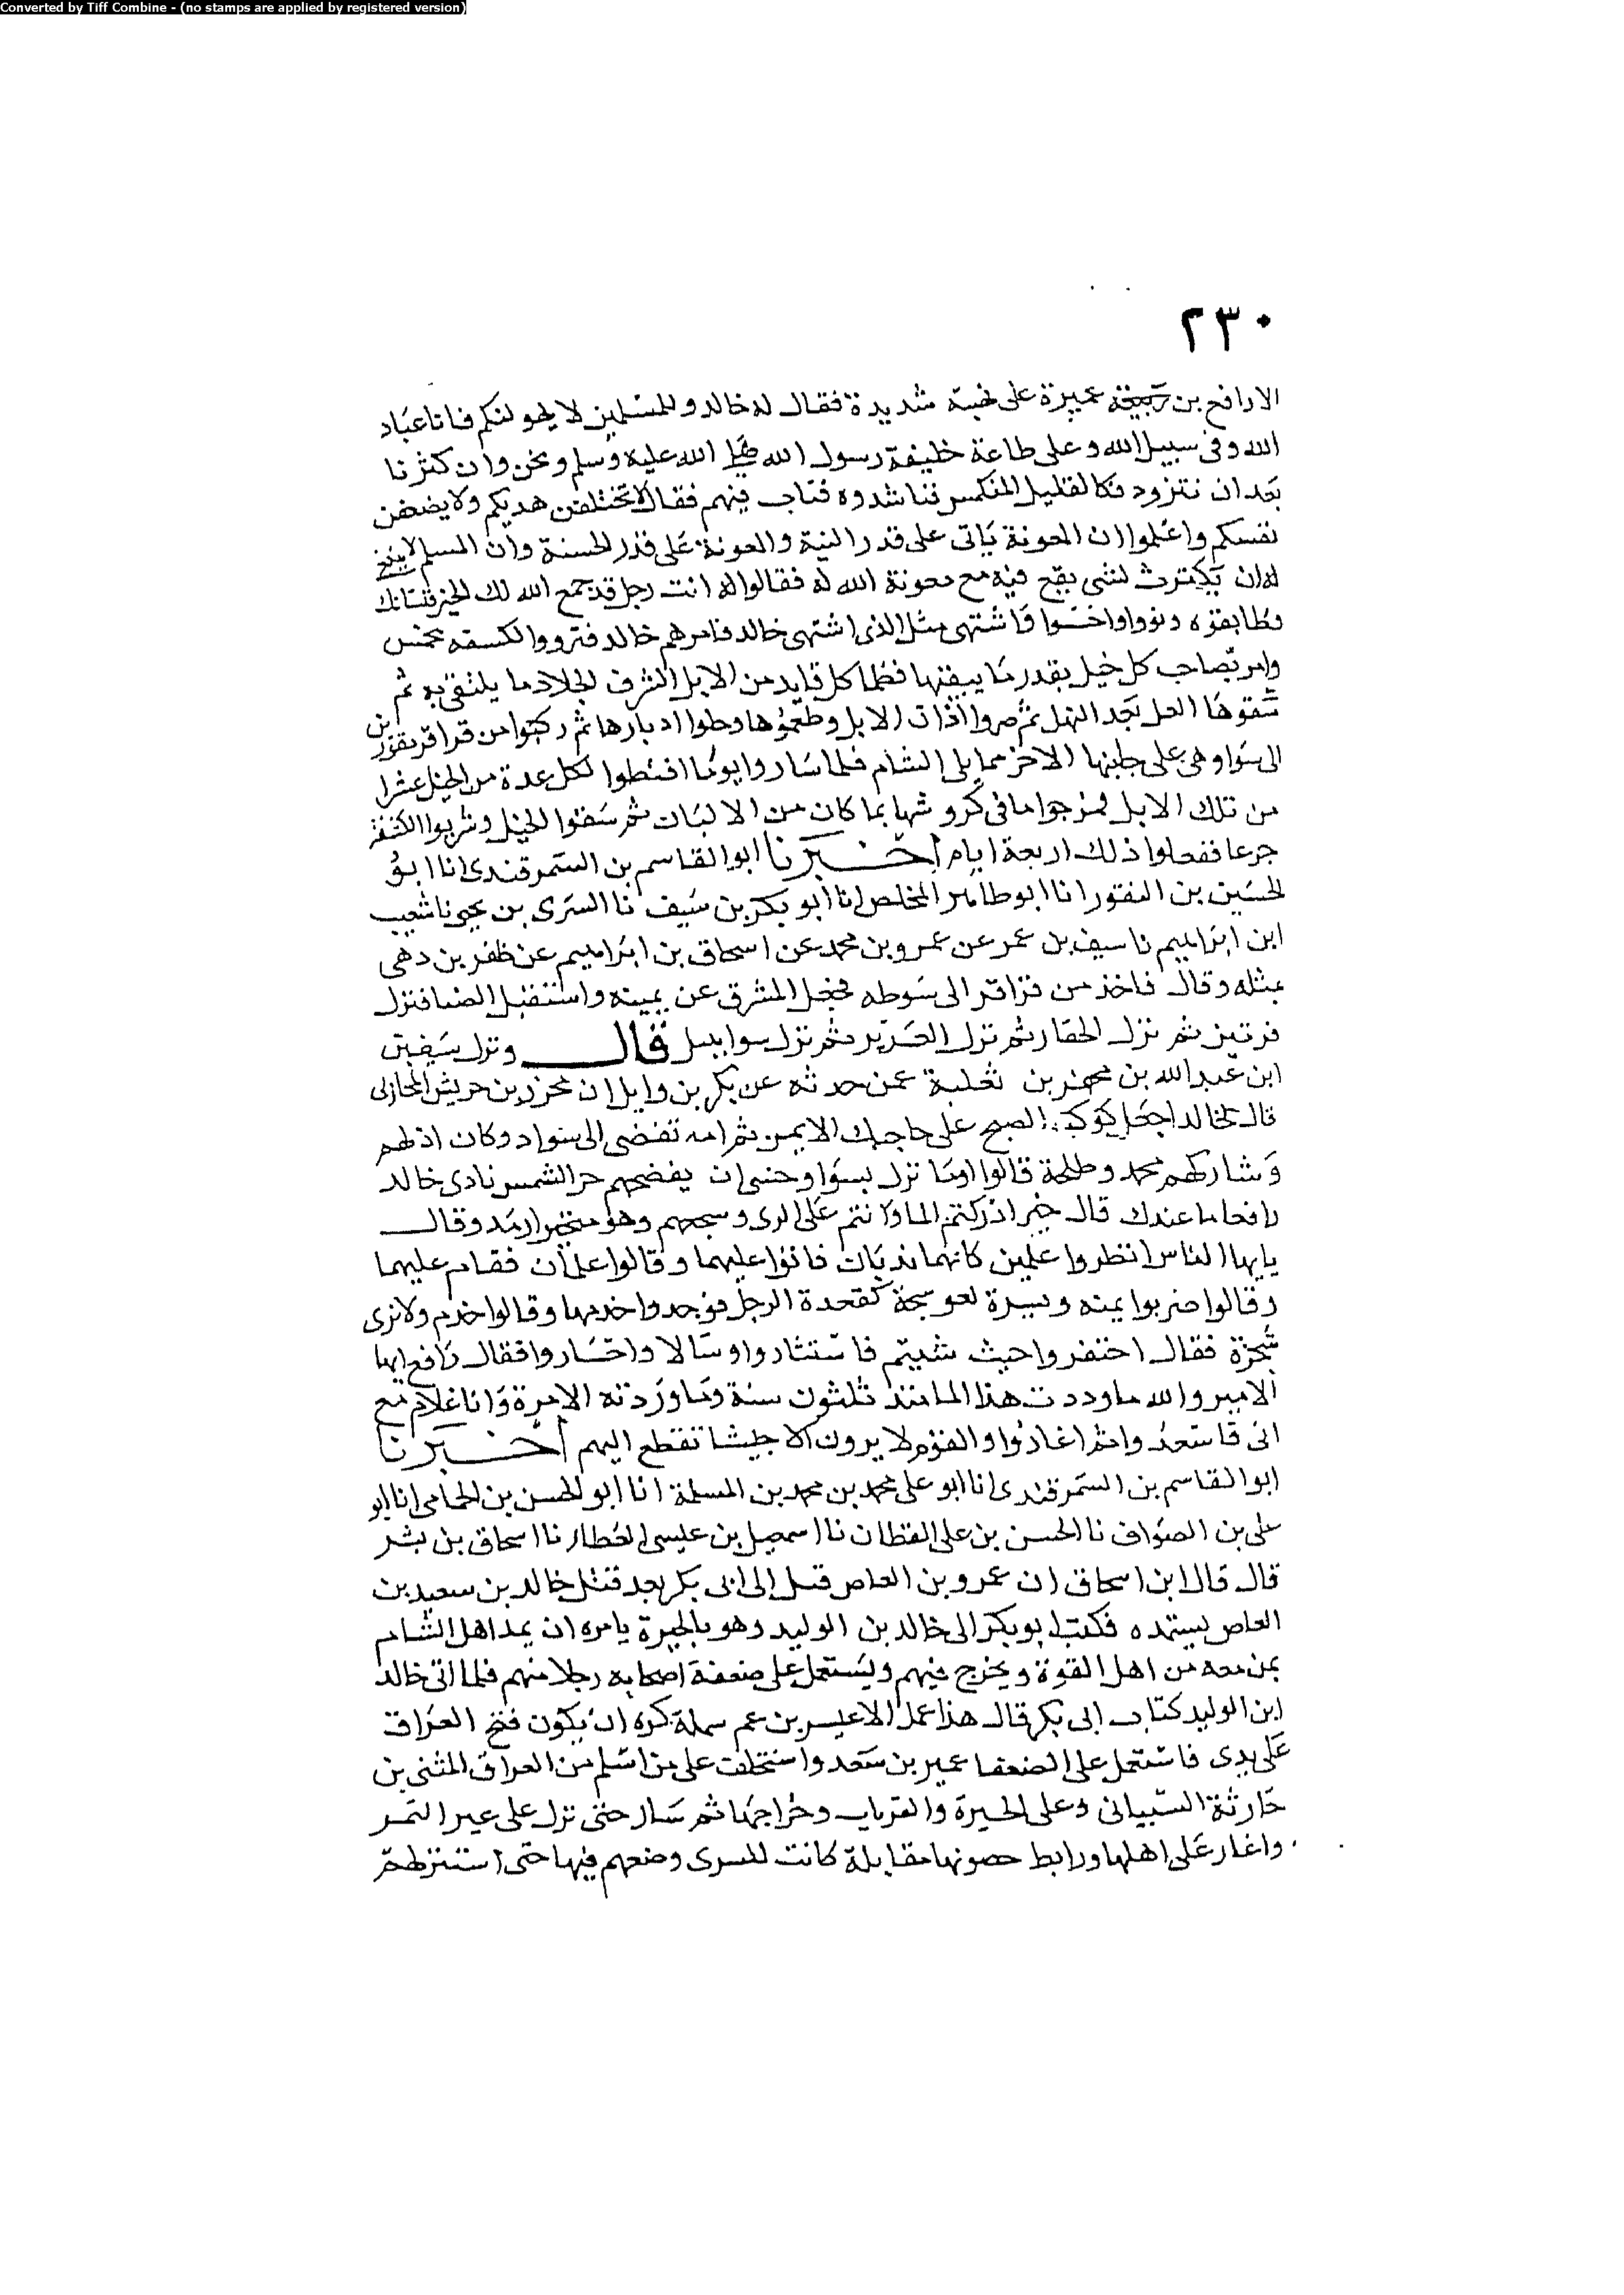 Converted by Tiff Combine - (no stamps are applied by registered version)
٢٣٠
الا رافع بن عميرة على شديدة فقال له خالد وللمسلمين لا يحولنكم فانا عباد
الله وفى سبيل الله وعلى طاعة خليفة رسول الله صلى الله عليه وسلم ونحن وان كثرنا
بعد ان نتزود فكالقليل المنكسر فناشدوه فتاب فيهم فقال لا تختلفن هديكم ولا يضعفن
نفسكم واعلموا ان المعونة ياتى على قدر النية والمعونة على قدر الحسنة وان المسلم لا ينبغى
له ان يكترث لشى يقع فيه مع معونة الله له فقالوا له انت رجل قد جمع الله لك الخير فشانك
فطابقوه ونووا واشتهى مثل الذى اشتهى خالد فامرهم خالد فترووا بخمس
وامر صاحب كل خيل بقدر ما فظما كل قايد من الابل الشرف الجلاد ما يلتقى به ثم
سقوها العل بعد النهل ثم صروا اذان الابل وادبارها ثم ركبوا من قراقر
الى سوا وهى على جانبها الاخر مما يلى الشام فلما ساروا يوما افتظوا لكل عدة من الخيل عشرا
من تلك الابل فمزجوا ما فى كروشها بما كان من الالبان ثم سقوا الخيل وشربوا
جرعا ففعلوا ذلك اربعة ايام اخبرنا ابو القاسم بن السمرقندى انا ابو
الحسين بن النقور انا ابو طاهر المخلص انا ابو بكر بن سيف نا السرى بن يحيى نا شعيب
ابن ابراهيم نا سيف بن عمر عن عمرو بن محمد عن اسحاق بن ابراهيم عن ظفر بن دهى
بمثله وقال فاخذ من قراقر الى سوطه فجعل المشرق عن يمينه واستقبل فنزل
ثم نزل الحفار ثم نزل ثم نزل سوا قال ونزل
ابن عبد الله بن محفز بن ثعلبة عمن حدثه عن بكر بن وايل ان محرز بن حريش المحاربى
قال لخالد اجعل كوكب الصبح على حاجبك الايمن ثم امه تفضى الى سوا وكان ادلهم
وشاركهم محمد وطلحة قالوا لما نزل بسوا وخشى ان يفضحهم حر الشمس نادى خالد
رافعا ما عندك قال خير ادركتم الما وانتم على الرى وسجعهم وهو متحير ارمد وقال
يايها الناس انظروا علمين كانهما ثديان فاتوا عليهما وقالوا علمان فقام عليهما
وقالوا ضربوا يمنه ويسرة لعوسجة كقعدة الرجل فوجدوا وقالوا جذم ولا نرى
شجرة فقال احتفروا حيث شيتم فاستثاروا فقال رافع ايها
الامير والله ما وردت هذا الما منذ ثلثون سنة وما وردته الا مرة وانا غلام مع
ابى ثم اغاروا والقوم لا يرون الا جيشا تقطع اليهم اخبرنا
ابو القاسم بن السمرقندى انا ابو على محمد بن محمد بن المسلمة انا ابو الحسن بن الحمامى انا ابو
على بن الصواف نا الحسن بن على القطان نا اسمعيل بن عيسى العطار نا اسحاق بن بشر
قال قال ابن اسحاق ان عمرو بن العاص الى ابى بكر بعد قتل خالد بن سعيد بن
العاص يستمده فكتب ابو بكر الى خالد بن الوليد وهو بالحيرة يامره ان يمد اهل الشام
بمن معه من اهل القوة ويخرج فيهم ويستعمل على ضعفة اصحابه رجلا منهم فلما اتى خالد
ابن الوليد كتاب ابى بكر قال هذا عمل الاعيسر بن سملة كره ان يكون فتح العراق
على يدى فاستعمل على الضعفا عمير بن سعد واستخلف على من اسلم من العراق المثنى بن
حارثة الشيبانى وعلى الحيرة والقريات وخراجها ثم سار حتى نزل على عين التمر
واغار على اهلها ورابط حصونها مقابلة كانت لكسرى وضعهم فيها حتى استنزلهم